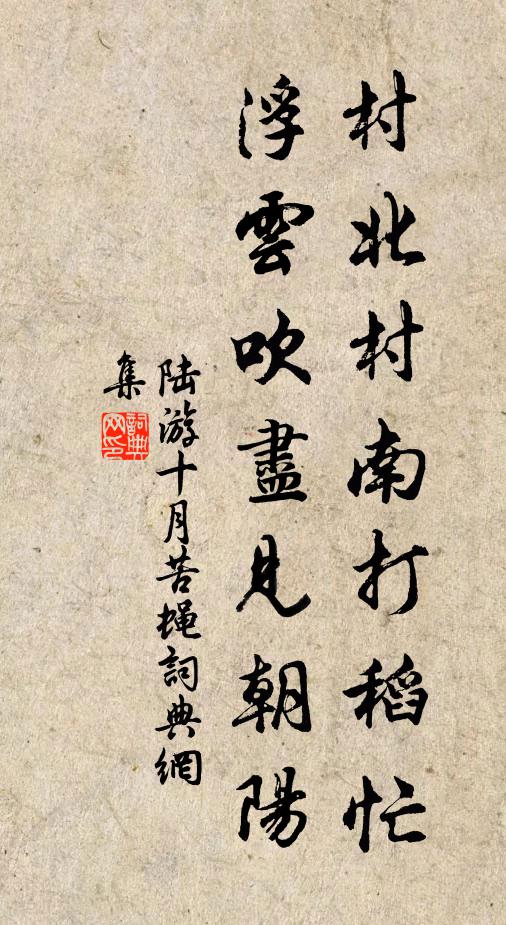 村北村南打稻忙
浮雲吹盡見朝陽
陆游十月苦蝇詞典網
集
詞典
网印